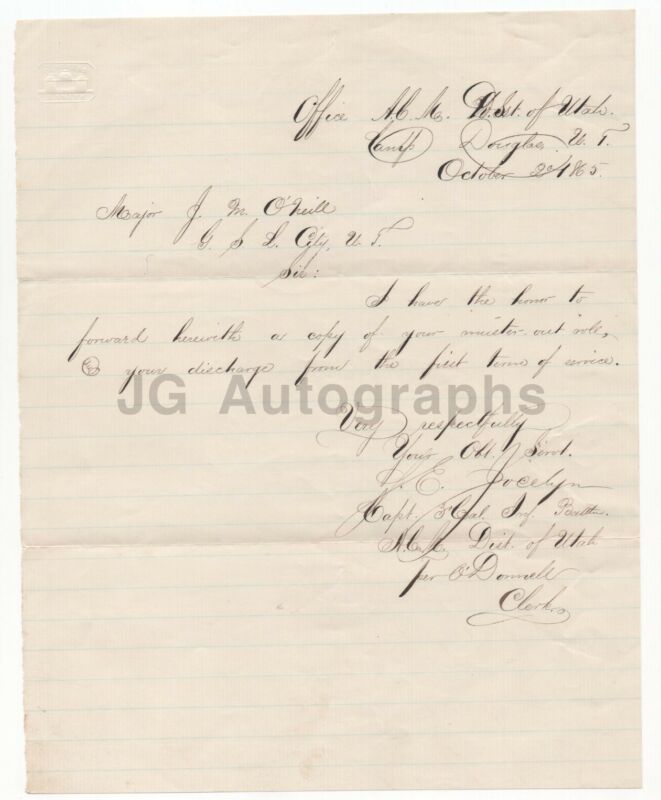 Office A. C. M. Dist. of Utah.
Camp Douglas, U. T.
October 2d, 1865.
Major J. M. O'Neill
G. S. L. City, U. T.
Sir:
I have the honor to
forward herewith a copy of your muster-out role,
& your discharge from the first term of service.
JG Autographs
Very respectfully
Your Obt. Servt.
S. E. Jocelyn
Capt. 3d Cal. Inf. Battn.
A. C. M. Dist. of Utah
Per O'Donnell
Clerk.